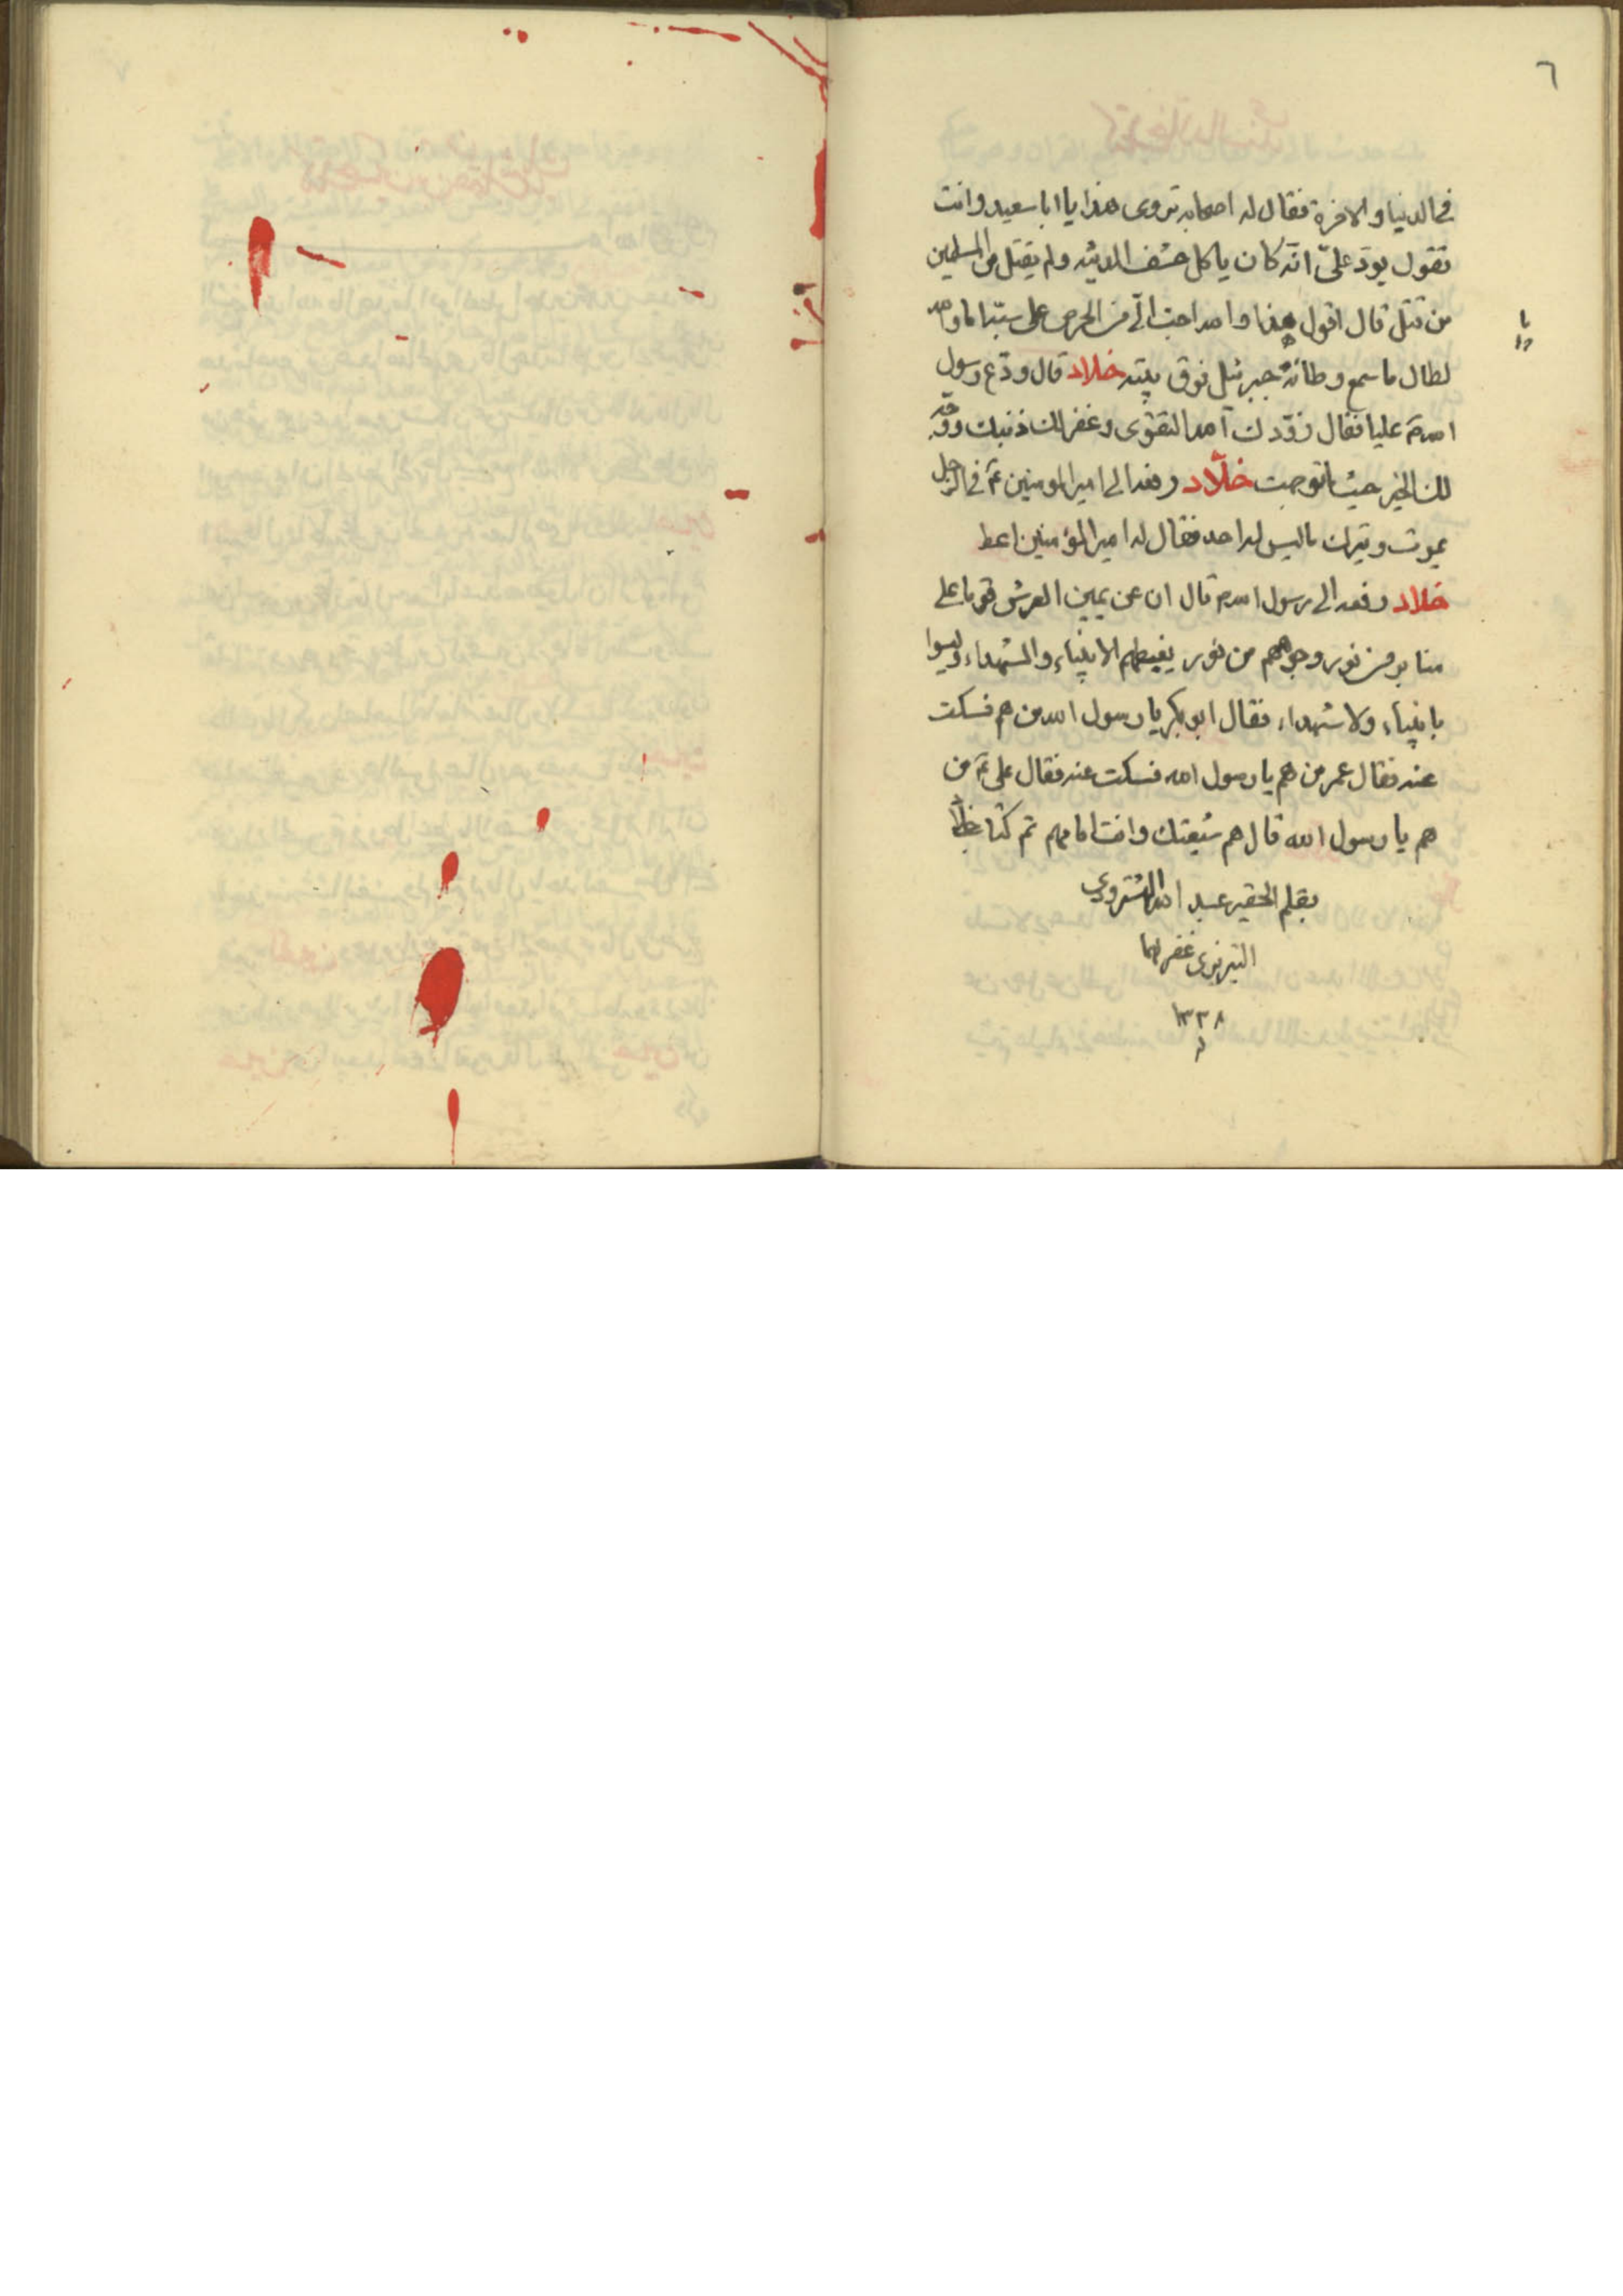 ٦
في الدنيا والاخرة فقال له اصحابه تروى هذا يا ابا سعيد وانت
تقول يود علىّ انه كان ياكل حشف المدينه ولم يقتل من المسلمين
من قتل قال اقول هذا واحب الىّ من الحرص على اما والله
لطال ما سمع وطأة جبرئيل فوق بيته خلاد قال ودّع رسول
الله ص عليا فقال زوّدك الله التقوى وغفر لك ذنبك ووجّه
لك الخير حيث ما توجهت خلّاد رفعه الى امير المومنين ع في الرجل
يموت ويترك ما ليس له احد فقال له امير المؤمنين اعط
خلاد رفعه الى رسول الله ص قال ان عن يمين العرش قوما على
منابر من نور وجوههم من نور يغبطهم الانبياء والشهداء وليسوا
بانبياء ولا شهداء فقال ابو بكر يا رسول الله من هم فسكت
عنه فقال عمر من هم يا رسول الله فسكت عنه فقال على ع من
هم يا رسول الله قال هم شيعتك وانت امامهم تم كتاب خلّاد
بقلم الحقير عبد الله
التبريزى غفر لهما
١٣٣٨